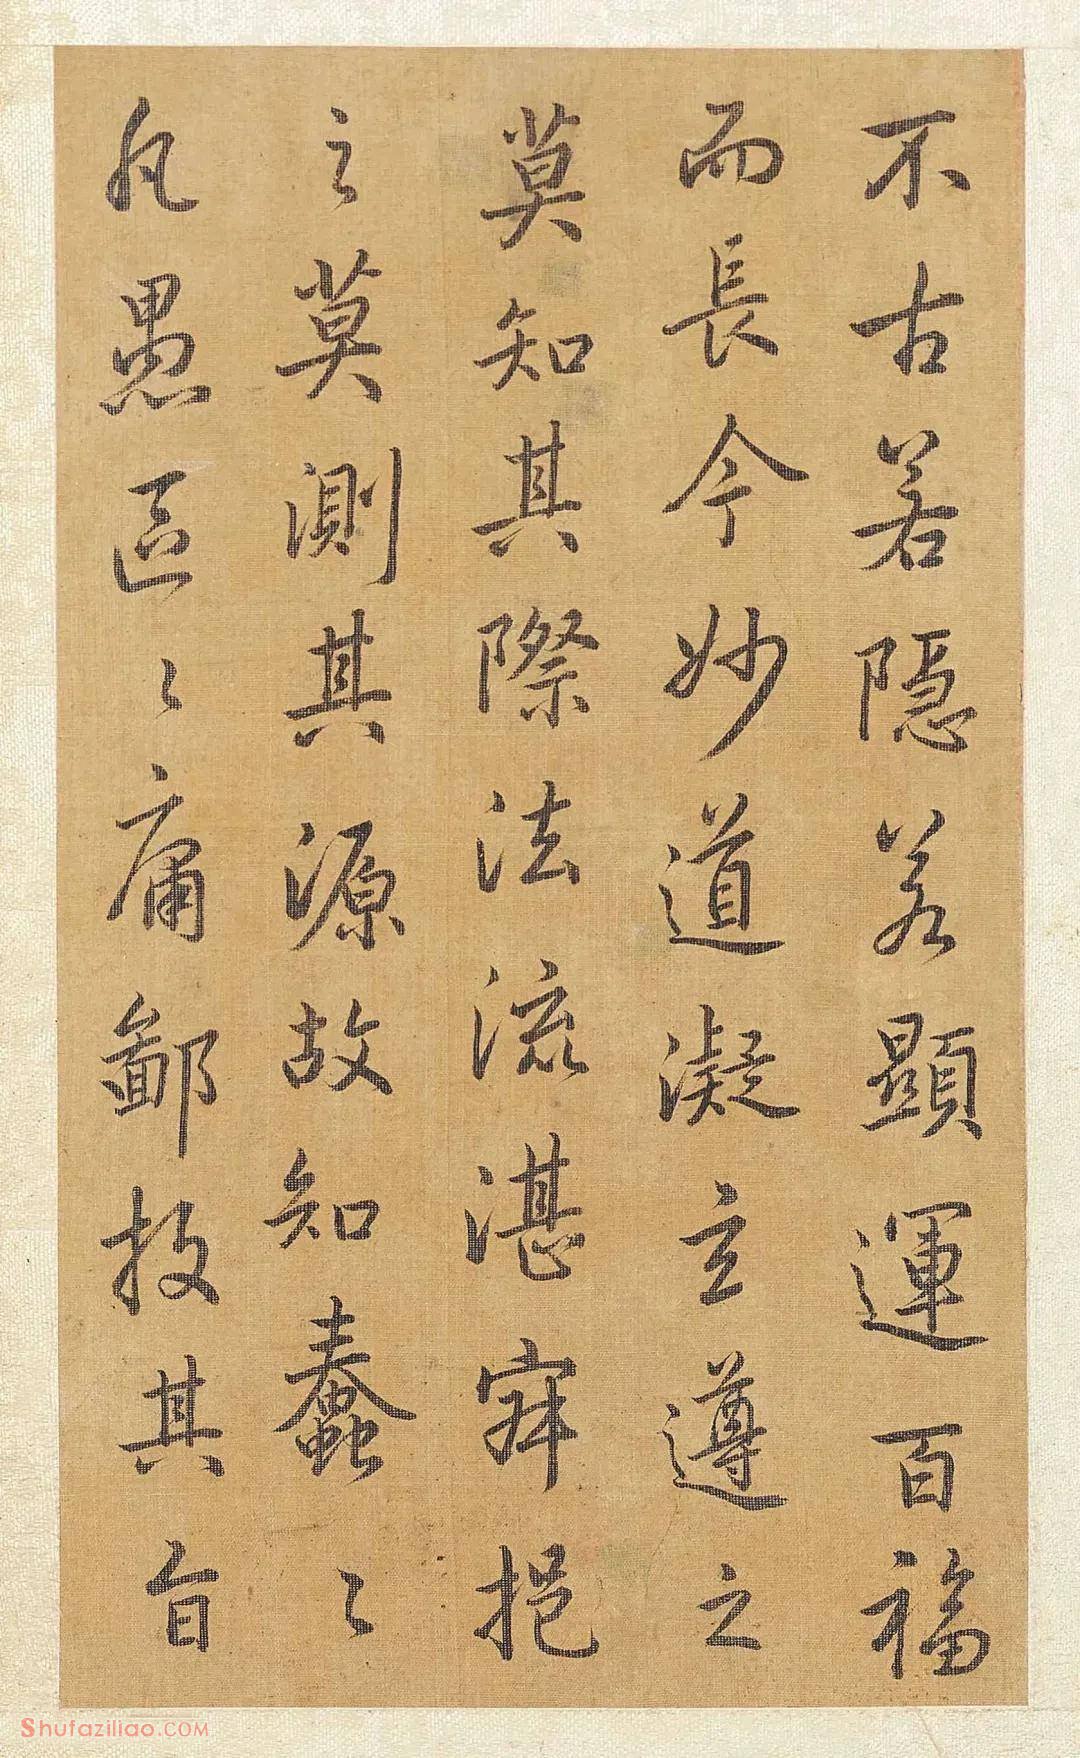 不古若隱若顯運百福
而長今妙道凝玄遵之
莫知其際法流湛寂挹
之莫測其源故知蠢〻
凡愚區〻庸鄙投其旨
Shufaziliao.COM